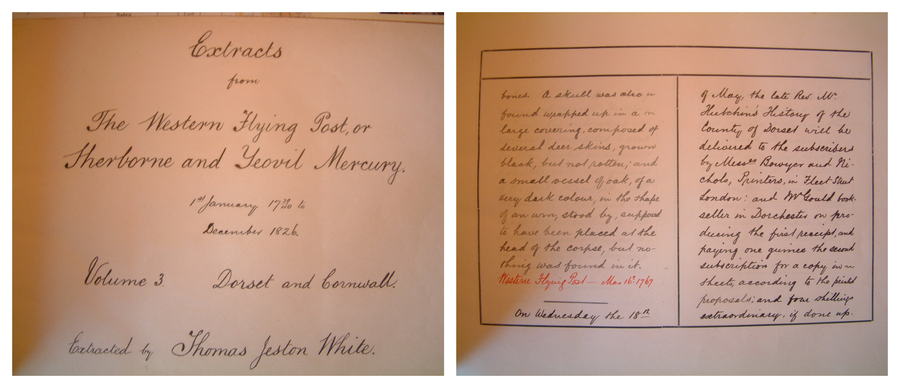 Extracts
from
The Western Flying Post, or
Sherborne and Yeovil Mercury.
1st January to
December 1826.
Volume 3. Dorset and Cornwall.
Extracted by Thomas Jeston White.
bones. A skull was also
found wrapped up in a
large covering, composed of
several deer skins, grown
black, but not rotten; and
a small vessel of oak, of a
very dark colour, in the shape
of an urn, stood by, supposed
to have been placed at the
head of the corpse, but no-
thing was found in it.
Western Flying Post — Mar. 16th 1767
On Wednesday the 18th
of May, the late Rev. Mr.
Hutchin's History of the
County of Dorset will be
delivered to the subscribers
by Messrs Bowyer and Ni-
chols, Printers, in Fleet Street
London: and Mr Gould book-
seller in Dorchester on pro-
ducing the first receipt, and
paying one guinea the second
subscription for a copy in
sheets, according to the printed
proposals; and four shillings
extraordinary, if done up.